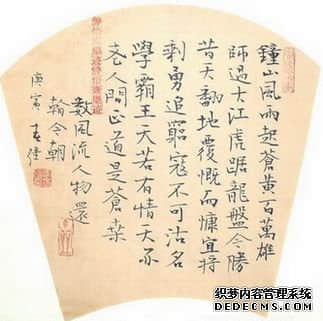 鐘山風雨起蒼黄百萬雄
師過大江虎踞龍盤今勝
昔天翻地覆慨而慷宜将
剩勇追窮寇不可沽名
學霸王天若有情天亦
老人間正道是蒼桑
數風流人物還
今朝
庚寅
织梦内容管理系统
DEDECMS.COM